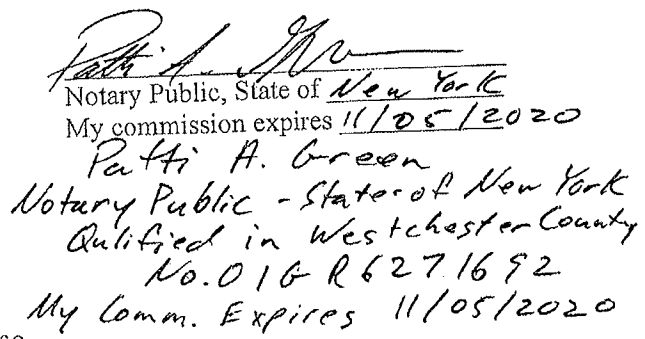 Patti A. Green
Notary Public, State of New York
My commission expires 11/05/2020
Patti A. Green
Notary Public - State of New York
Qulified in Westchester County
No. 01GR6271692
My Comm. Expires 11/05/2020